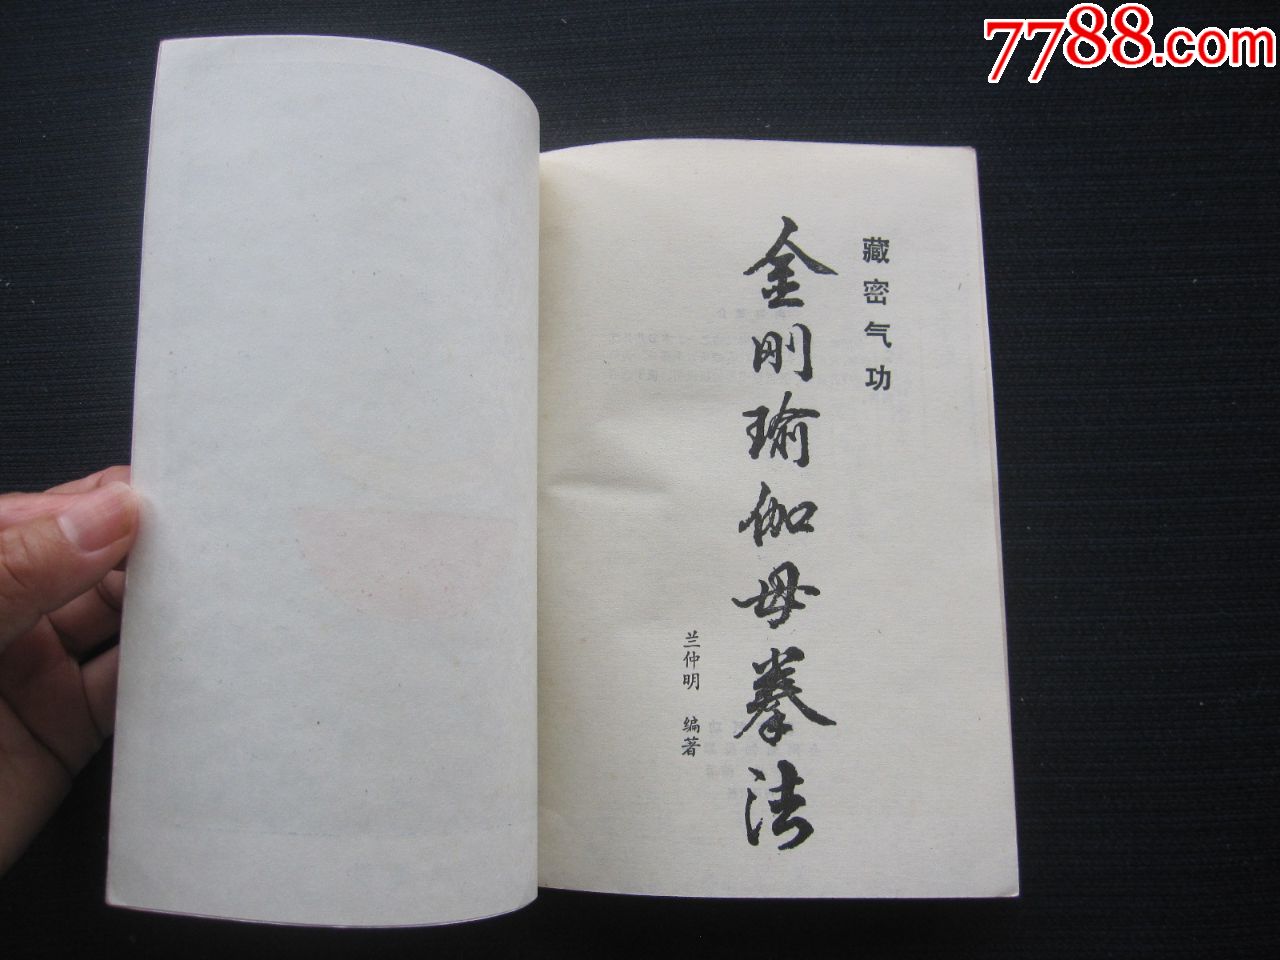 7788.com
藏密气功
金刚瑜伽母拳法
兰仲明 编著